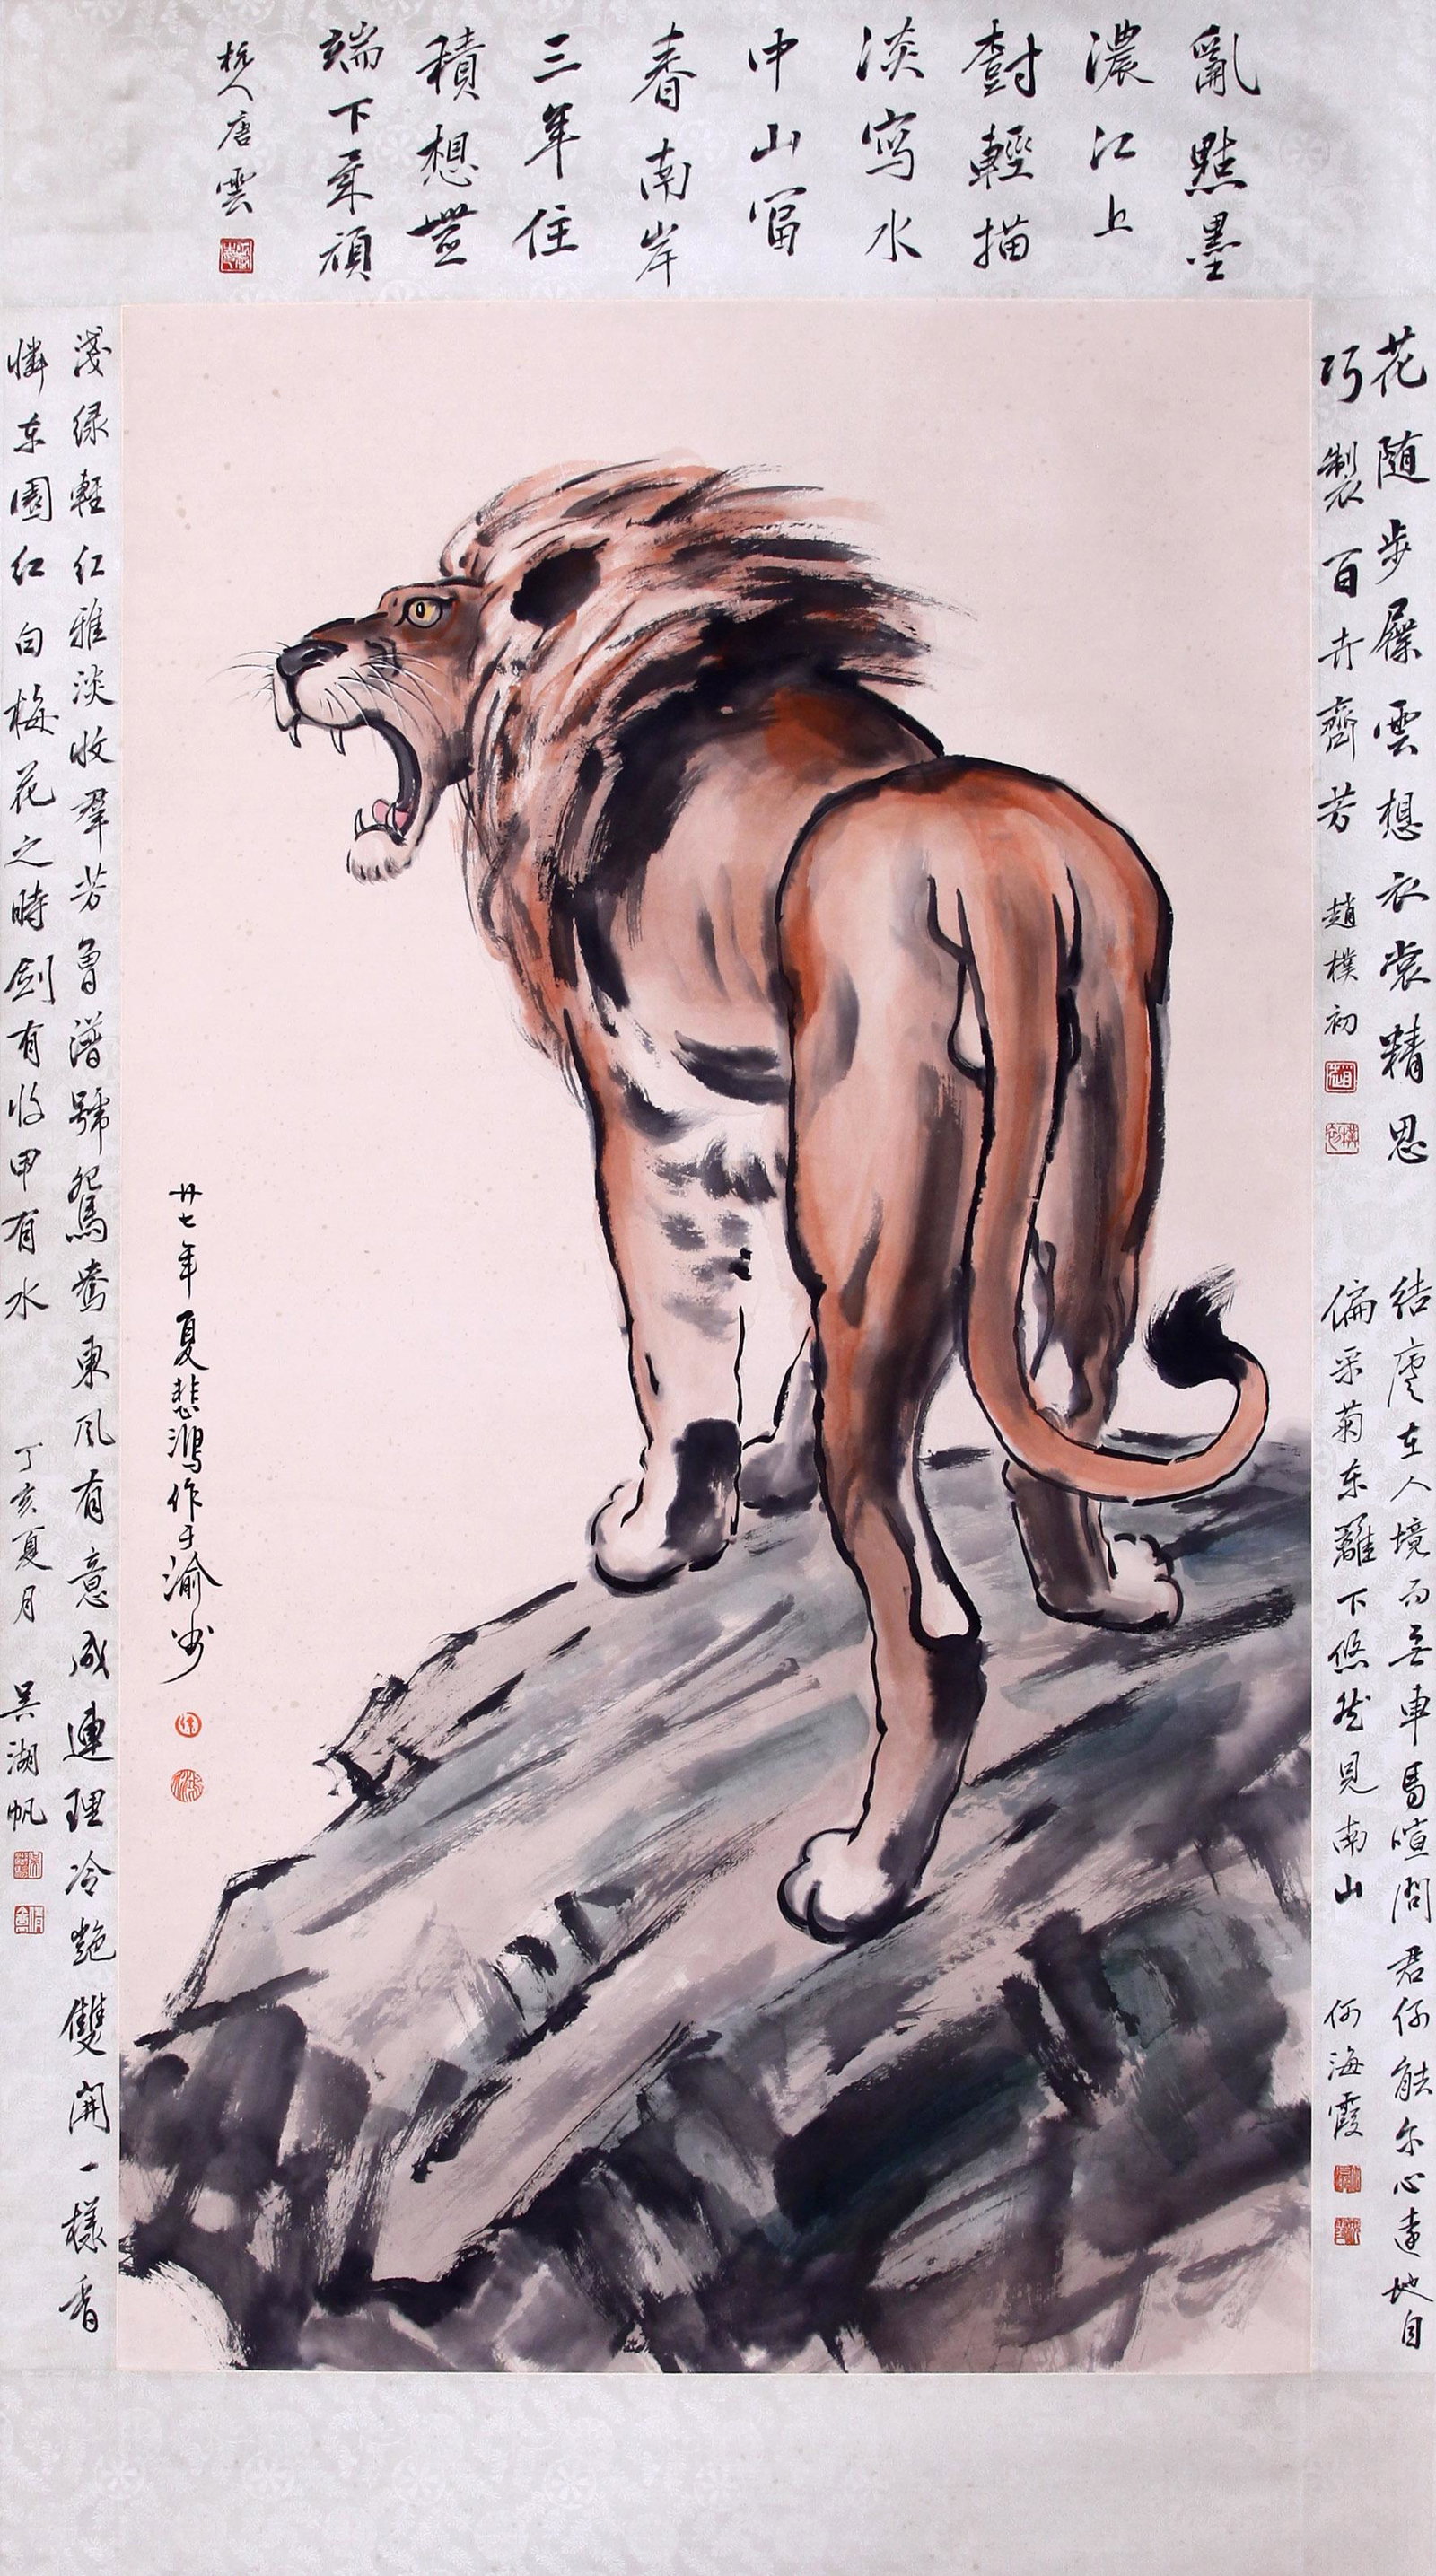 亂點墨
濃江上
樹輕描
淡寫水
中山富
春南岸
三年住
積想豈
端下筆頑
杭人唐雲
花随步屧雲想衣裳精思
巧製百卉齊芳
趙樸初
结廬在人境而无車馬喧问君何能尔心遠地自
偏采菊东籬下悠然見南山
何海霞
廿七年夏悲鴻作于渝州
淺绿輕红雅淡收群芳曾譜號鴛鴦東风有意成連理冷艳雙開一樣香
憐东園红白梅花之時剑有收甲有水
丁亥夏月 吴湖帆